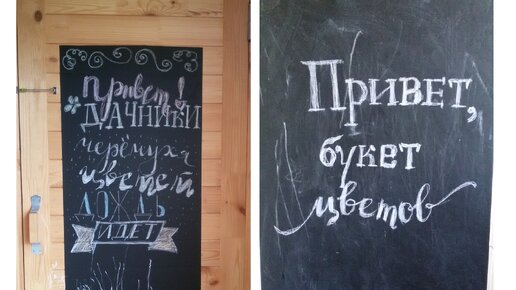 привет!
ДАЧНИКИ
черёмуха
цветёт
ДОЖДЬ
ИДЕТ
ПРИВЕТ,
букет
цветов